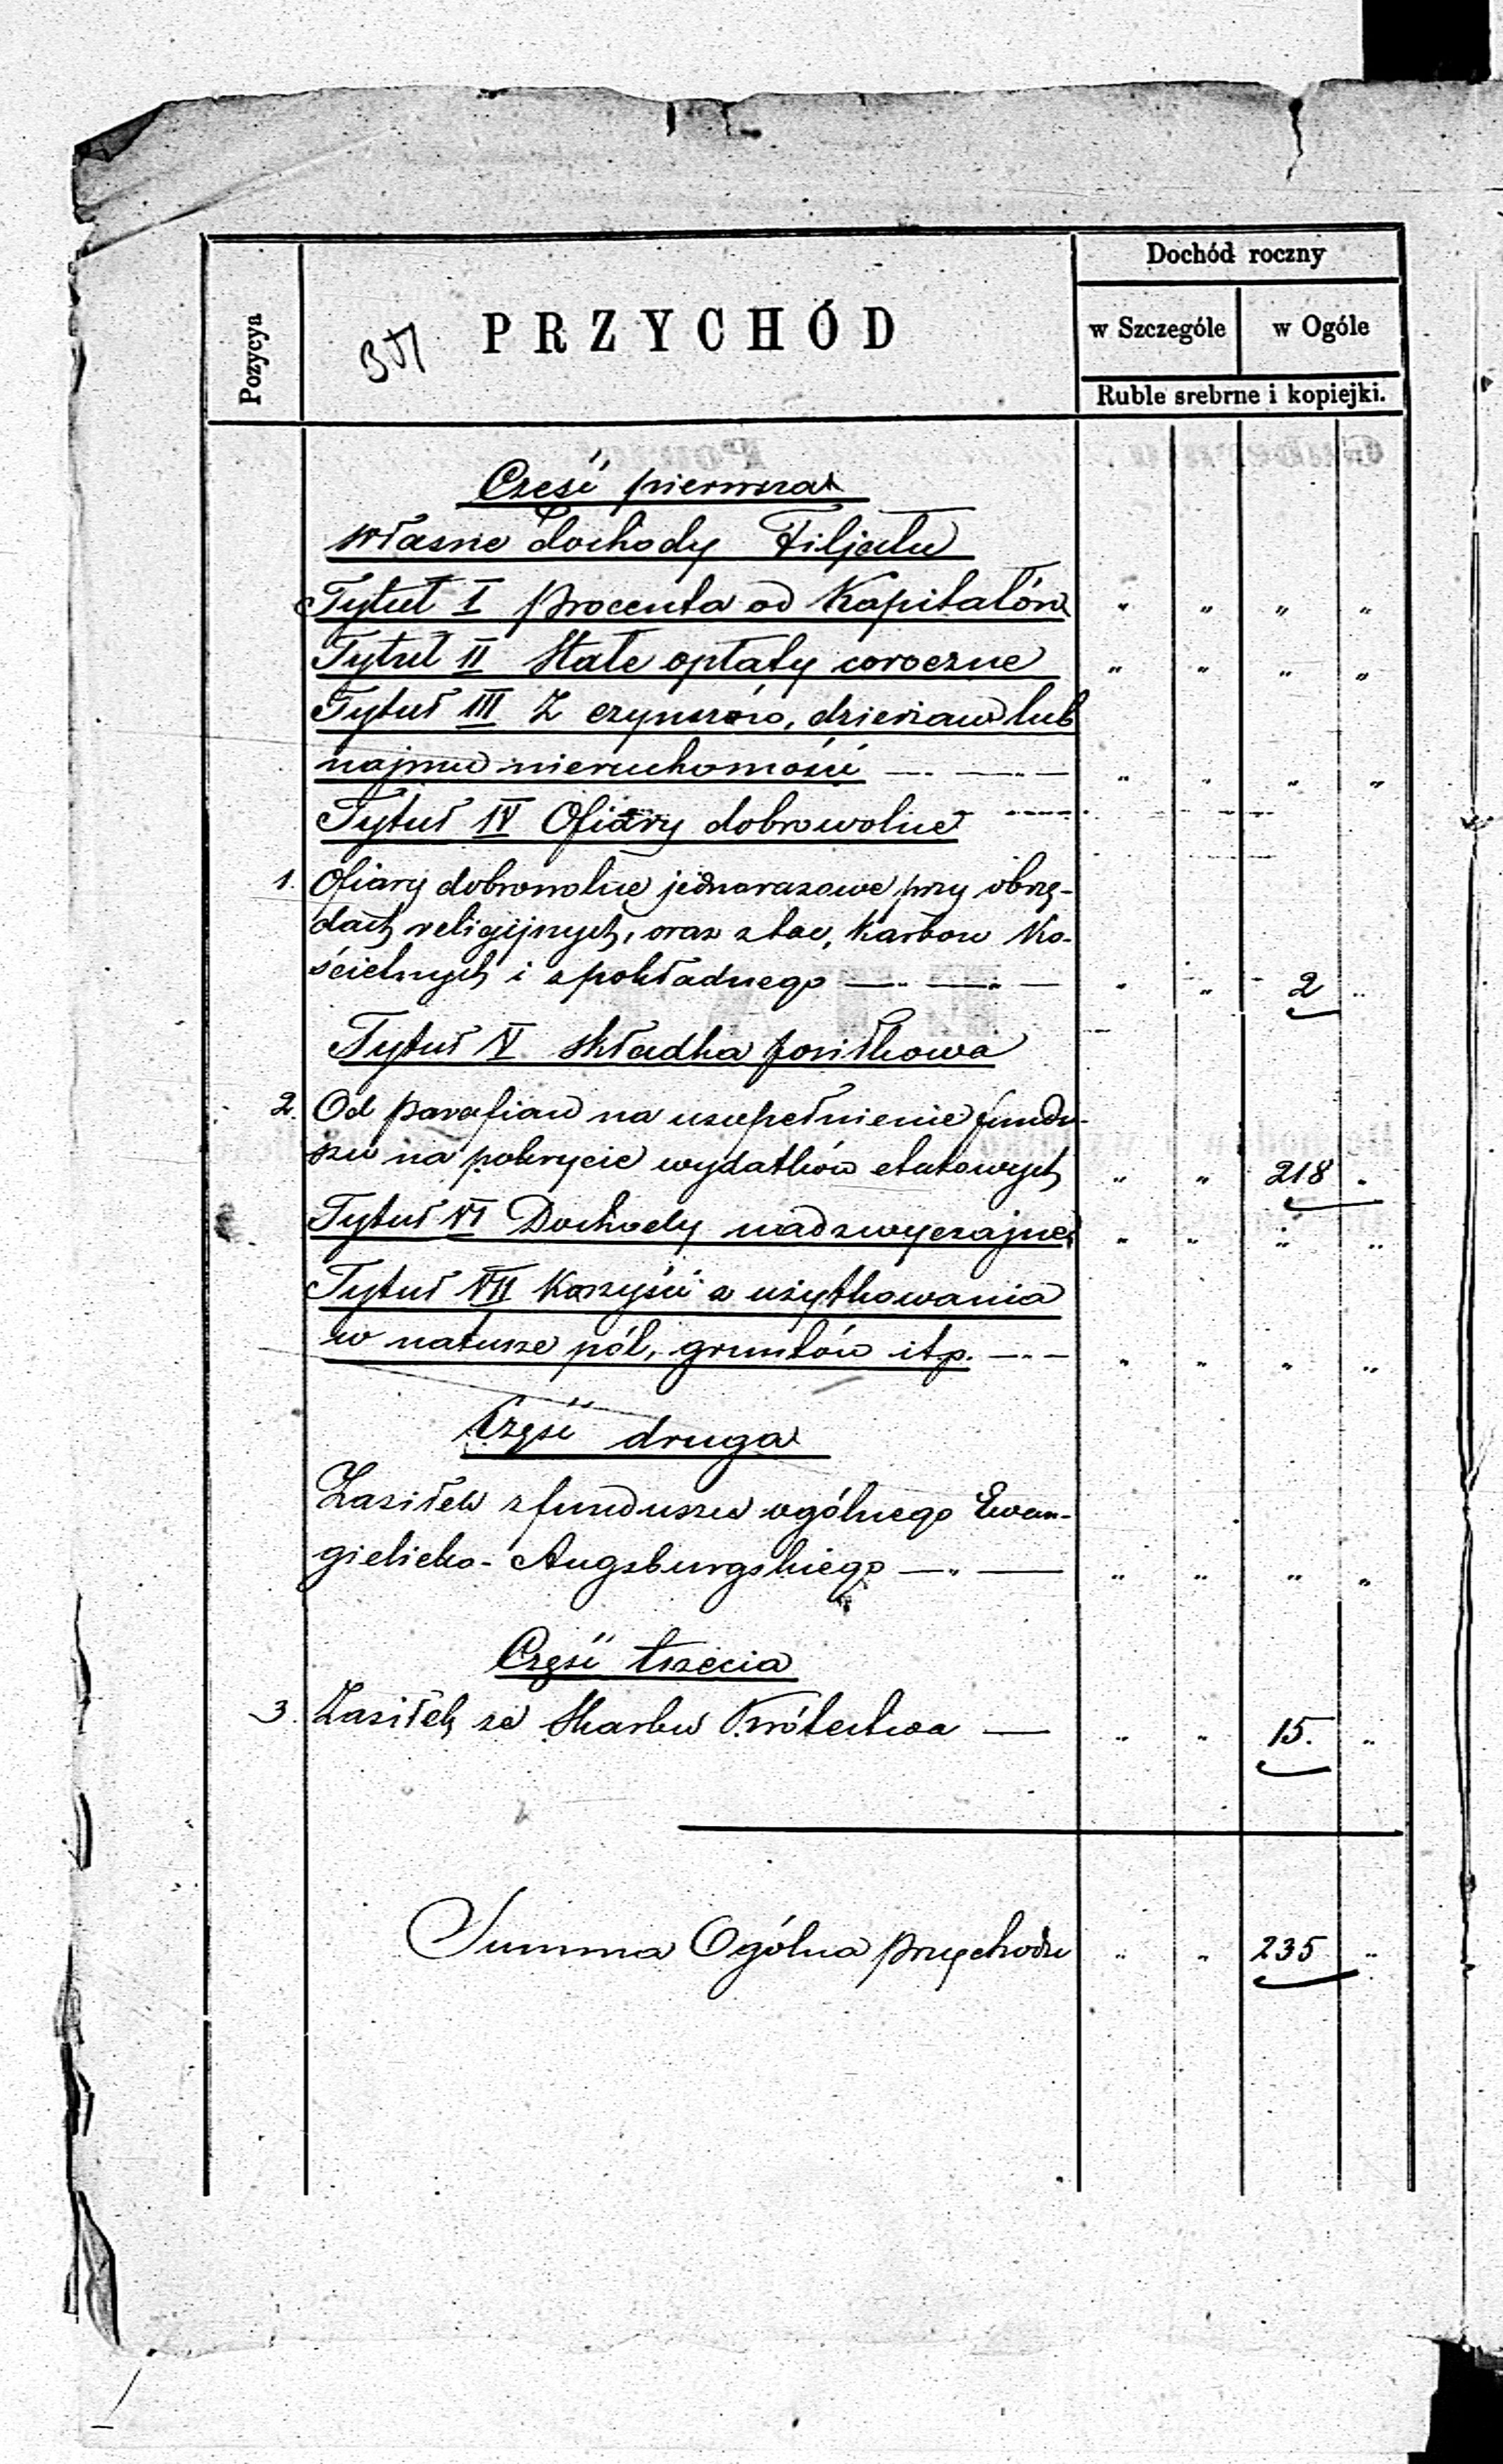 Dochód roczny
Pozycya
PRZYCHÓD
w Szczególe w Ogóle
Ruble srebrne i kopiejki.
Cześć pierwsza
własne dochody Filjału
Tytuł I Procenta od Kapitałów " " " "
Tytuł II Stałe opłaty coroczne " " " "
Tytuł III Z czynszów, dzierżaw lub
najmu nieruchomości " " " "
Tytuł IV Ofiary dobrowolne
1. Ofiary dobrowolne jednorazowe przy obrzę-
dach religijnych, oraz z tac, Karbon Ko-
ścielnych i z pokładnego " " 2 "
Tytuł V składka posiłkowa
2. Od parafian na uzupełnienie fundu-
szu na pokrycie wydatków etatowych " " 218 "
Tytuł VI Dochody nadzwyczajne " " " "
Tytuł VII Korzyści z użytkowania
w naturze pól, gruntów itp. " " " "
Część druga
Zasiłek z funduszu ogólnego Ewan-
gielicko-Augsburgskiego " " " "
Część trzecia
3. Zasiłek ze Skarbu Królestwa — " " 15. "
Summa Ogólna przychodu " " 235 "